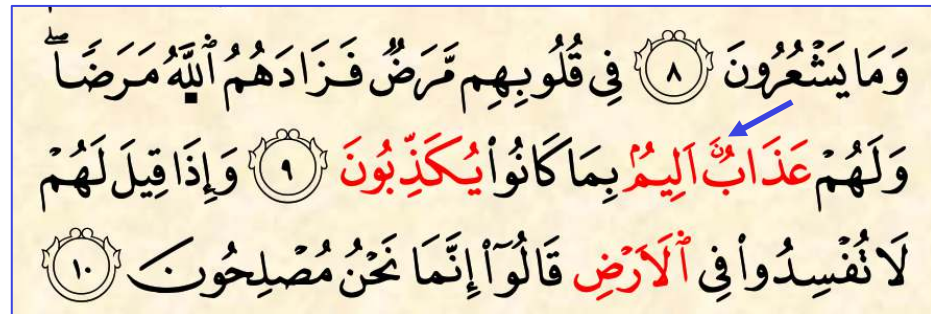 وَمَا يَشْعُرُونَ ٨ فِى قُلُوبِهِم مَّرَضٌ فَزَادَهُمُ ٱللَّهُ مَرَضًاۖ
وَلَهُمْ عَذَابٌ اَلِيمُۢ بِمَا كَانُواْ يُكَذِّبُونَ ٩ وَإِذَا قِيلَ لَهُمْ
لَا تُفْسِدُواْ فِى ٱلَارْضِ قَالُوٓاْ إِنَّمَا نَحْنُ مُصْلِحُونَ ١٠